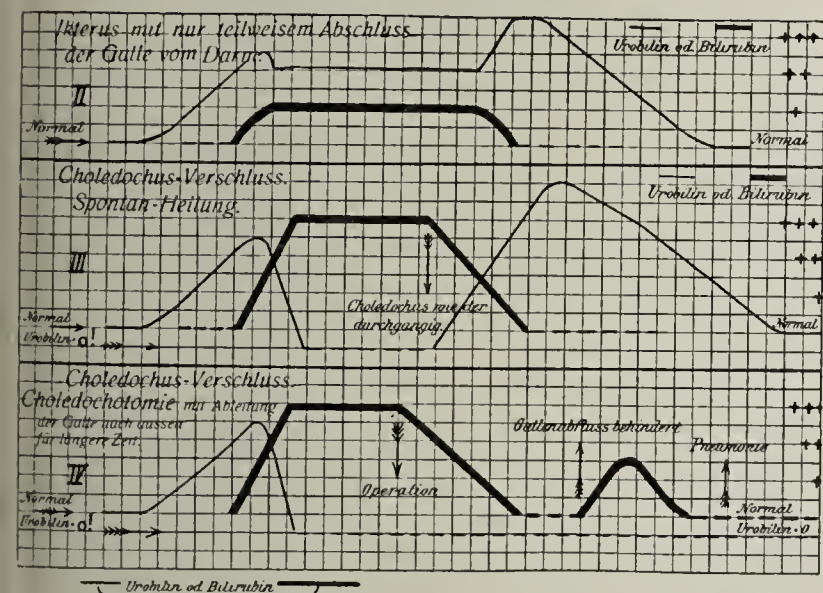 Ikterus mit nur teilweisem Abschluss
der Galle vom Darm.
Urobilin od. Bilirubin
+++
++
+
II
Normal
Normal
Choledochus-Verschluss.
Spontan-Heilung.
Urobilin od. Bilirubin
+++
++
+
III
Choledochus wieder
durchgängig.
Normal
Normal
Urobilin · o!
Choledochus-Verschluss.
Choledochotomie mit Ableitung
der Galle nach aussen
für längere Zeit.
+++
++
+
Gallenabfluss behindert
Pneumonie
IV
Operation
Normal
Normal
Urobilin · o!
Urobilin · O
Urobilin od Bilirubin